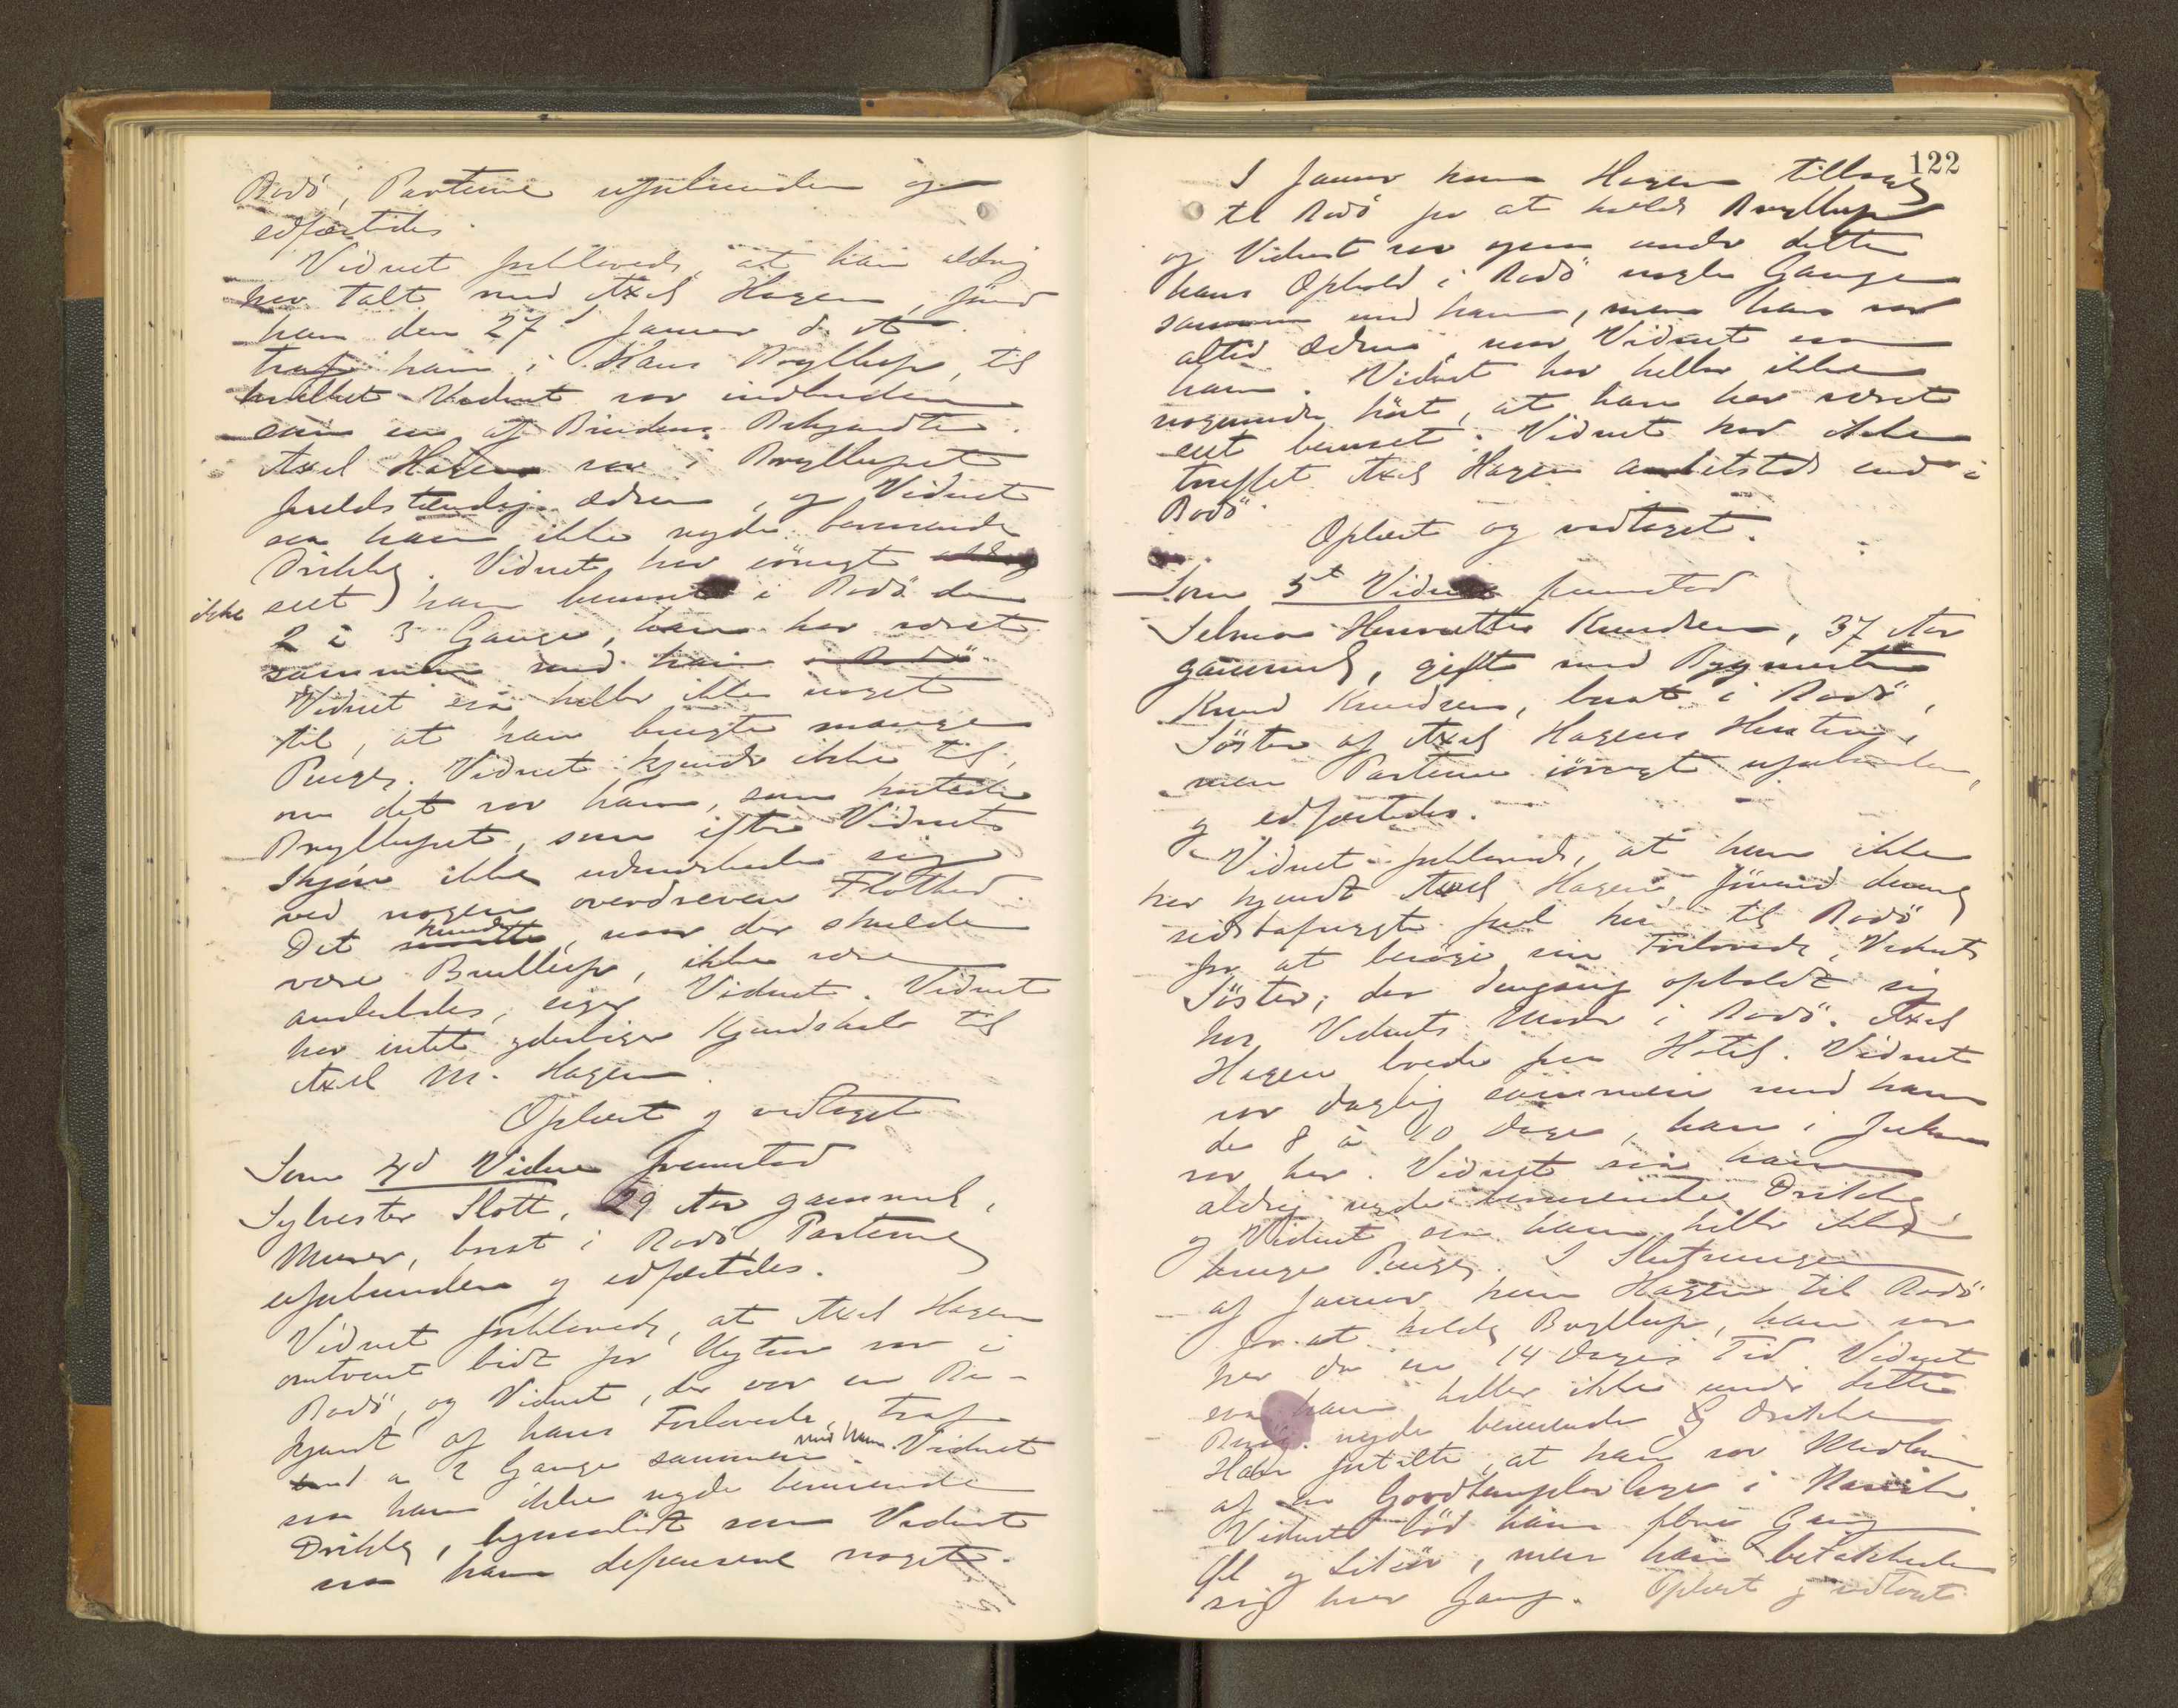 Bodö, Parterne uforbunden og
edfæstedes.
Vidnet forklarede, at han aldrig
har talt med Axel Hagen, förend
han den 27d Januar d. A.
traf ham i Hans Bryllup, til
hvilket Vidnet var indbuden
som en af Brudens Bekjendte.
Axel Hagen var i Bryllupet
fuldstændig ædru, og Vidnet
saa ham ikke nyde berusende
Drikke. Vidnet har iövrigt
ikke seet ham beruset i Bodö de
2 à 3 Gange, han har været
sammen med ham
Vidnet saa heller ikke noget
til, at han brugte mange
Penge. Vidnet kjender ikke til,
om det var ham, som kostede
Bryllupet, som efter Vidnets
Skjön ikke udmærkede sig
ved nogen overdreven Flothed.
Det kunde, naar der skulde
være Bryllup, ikke være
anderledes, siger Vidnet. Vidnet
har intet yderligere Kjendskab til
Axel M. Hagen.
Oplæst og vedtaget
Som 4d Vidne fremstod
Sylvester Slott, 29 Aar gammel,
Murer, bosat i Bodö, Parterne
uforbunden og edfæstedes.
Vidnet forklarede, at Axel Hagen
omtrent bidt for Nytaar var i
Bodö, og Vidnet, der var en Be-
kjendt af hans Forlovede, traf
en à 2 Gange sammen med ham. Vidnet
saa ham ikke nyde berusende
Drikke, ligesaalidt som Vidnet
saa ham depensere noget.
122
I Januar kom Hagen tilbage
til Bodö for at holde Bryllup
og Vidnet var ogsaa under dette
hans Ophold i Bodö nogle Gange
sammen med ham, men han var
altid ædru, naar Vidnet saa
ham. Vidnet har heller ikke
nogensinde hört, at han har været
seet beruset. Vidnet har ikke
truffet Axel Hagen andetsteds end i
Bodö.
Oplæst og vedtaget.
Som 5t Vidne fremstod
Selma Henriette Knudsen, 37 Aar
gammel, gift med Bygmester
Knud Knudsen, bosat i Bodö,
Söster af Axel Hagens Hustru,
men Parterne iövrigt uforbunden,
og edfæstedes.
Vidnet forklarede, at hun ikke
har kjendt Axel Hagen, förend denne
sidstafvigte Jul kom til Bodö
for at besöge sin Forlovede, Vidnets
Söster, der dengang opholdt sig
hos Vidnets Moder i Bodö. Axel
Hagen boede paa Hotel. Vidnet
var daglig sammen med ham
de 8 à 10 Dage, han i Julen
var her. Vidnet saa ham
aldrig nyde berusende Drikke,
og Vidnet saa ham heller ikke
bruge Penge. I Slutningen
af Januar kom Hagen til Bodö
for at holde Bryllup, han var
her da en 14 Dages Tid. Vidnet
saa ham heller ikke under dette
Besög nyde berusende Drikke
Han fortalte, at han var Medlem
af en Goodtemplarloge i Narvik.
Vidnet böd ham flere Gange
Öl og Likör, men han betakkede
sig hver Gang. Oplæst og vedtaget